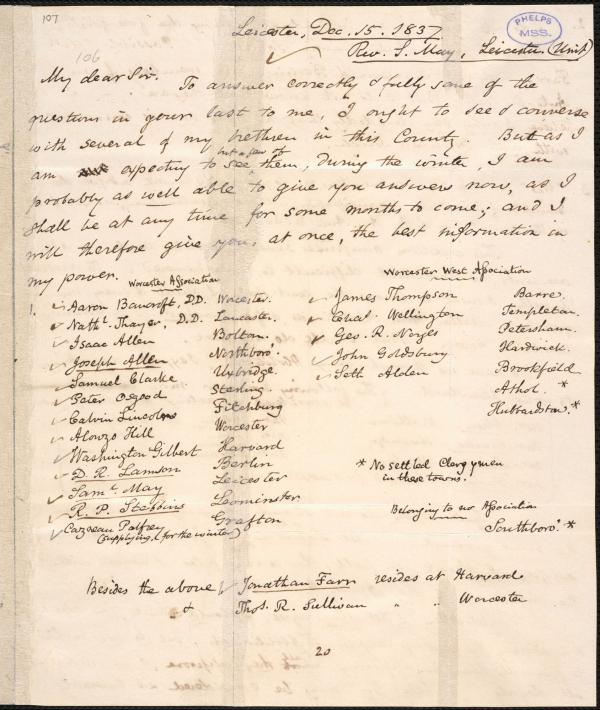 107
Leicester, Dec. 15. 1837
PHELPS
MSS.
106
Rev. S. May, Leicester. (Unit)
My dear Sir. To answer correctly & fully some of the
questions in your last to me, I ought to see & converse
with several of my brethren in this County. But as I
am expecting to see but a few of them, during the winter, I am
probably as well able to give you answers now, as I
shall be at any time for some months to come; and I
will therefore give you, at once, the best information in
my power.
Worcester Association
1. Aaron Bancroft, D.D. Worcester.
Nathl. Thayer, D.D. Lancaster.
Isaac Allen Bolton.
Joseph Allen Northboro'
Samuel Clarke Uxbridge.
Peter Osgood Sterling.
Calvin Lincoln Fitchburg
Alonzo Hill Worcester
Washington Gilbert Harvard
D. R. Lamson Berlin
Saml. May Leicester
R. P. Stebbins Leominster
Cazneau Palfrey Grafton
(supplying, (for the winter)
Worcester West Association
James Thompson Barre.
Chas. Wellington Templeton.
Geo. R. Noyes Petersham.
John Goldsbury Hardwick.
Seth Alden Brookfield
Athol. *
Hubbardston. *
* No settled Clergymen
in these towns.
Belonging to no Association
Southboro'. *
Besides the above Jonathan Farr resides at Harvard
& Thos. R. Sullivan " " Worcester
20